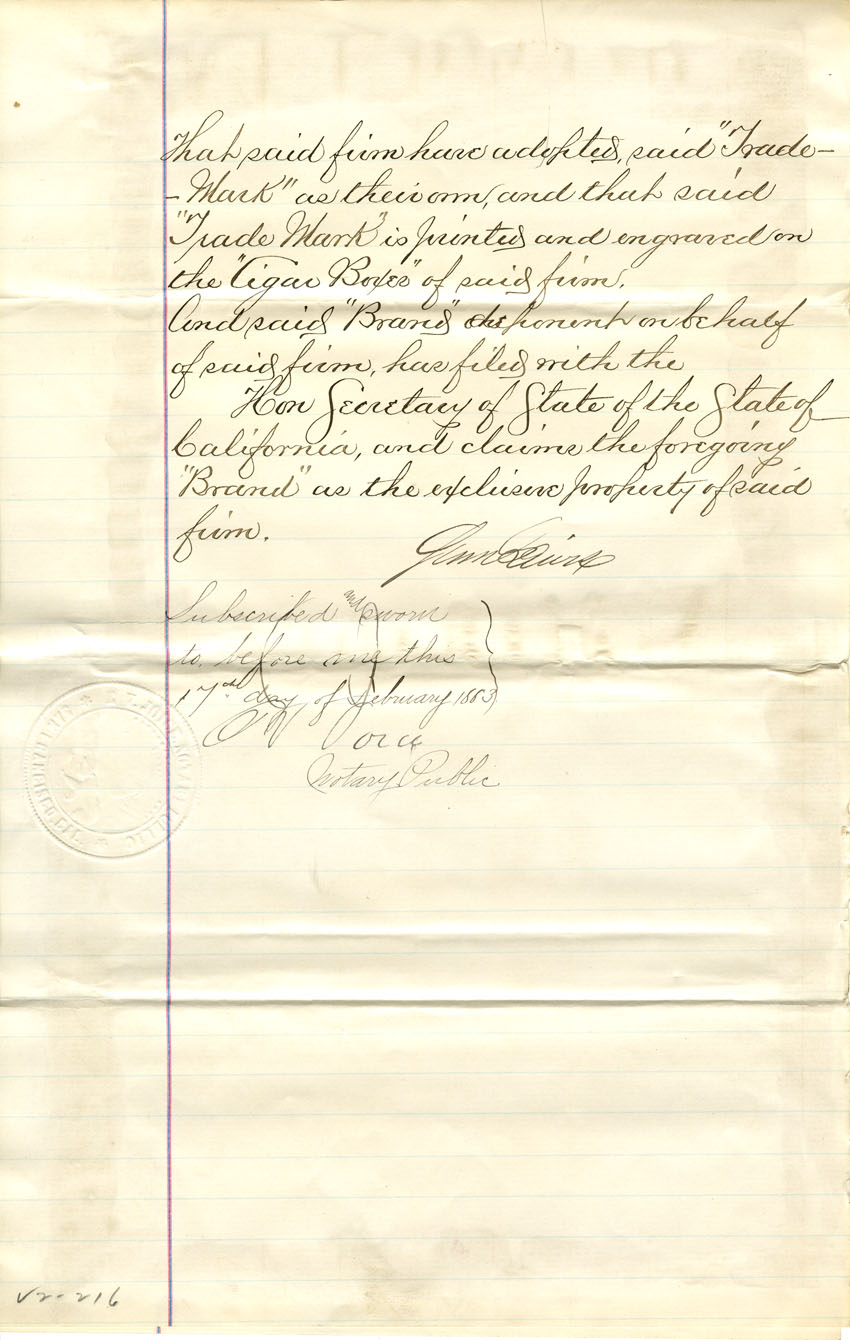 That said firm have adopted, said "Trade-
-Mark" as their own, and that said
"Trade Mark" is printed and engraved on
the "Cigar Boxes" of said firm.
And said "Brand" deponent on behalf
of said firm, has filed with the
Hon Secretary of State of the State of
California, and claims the foregoing
"Brand" as the exclusive property of said
firm.
Subscribed and sworn
to before me this
17th day of February 1883
Notary Public
V2-216